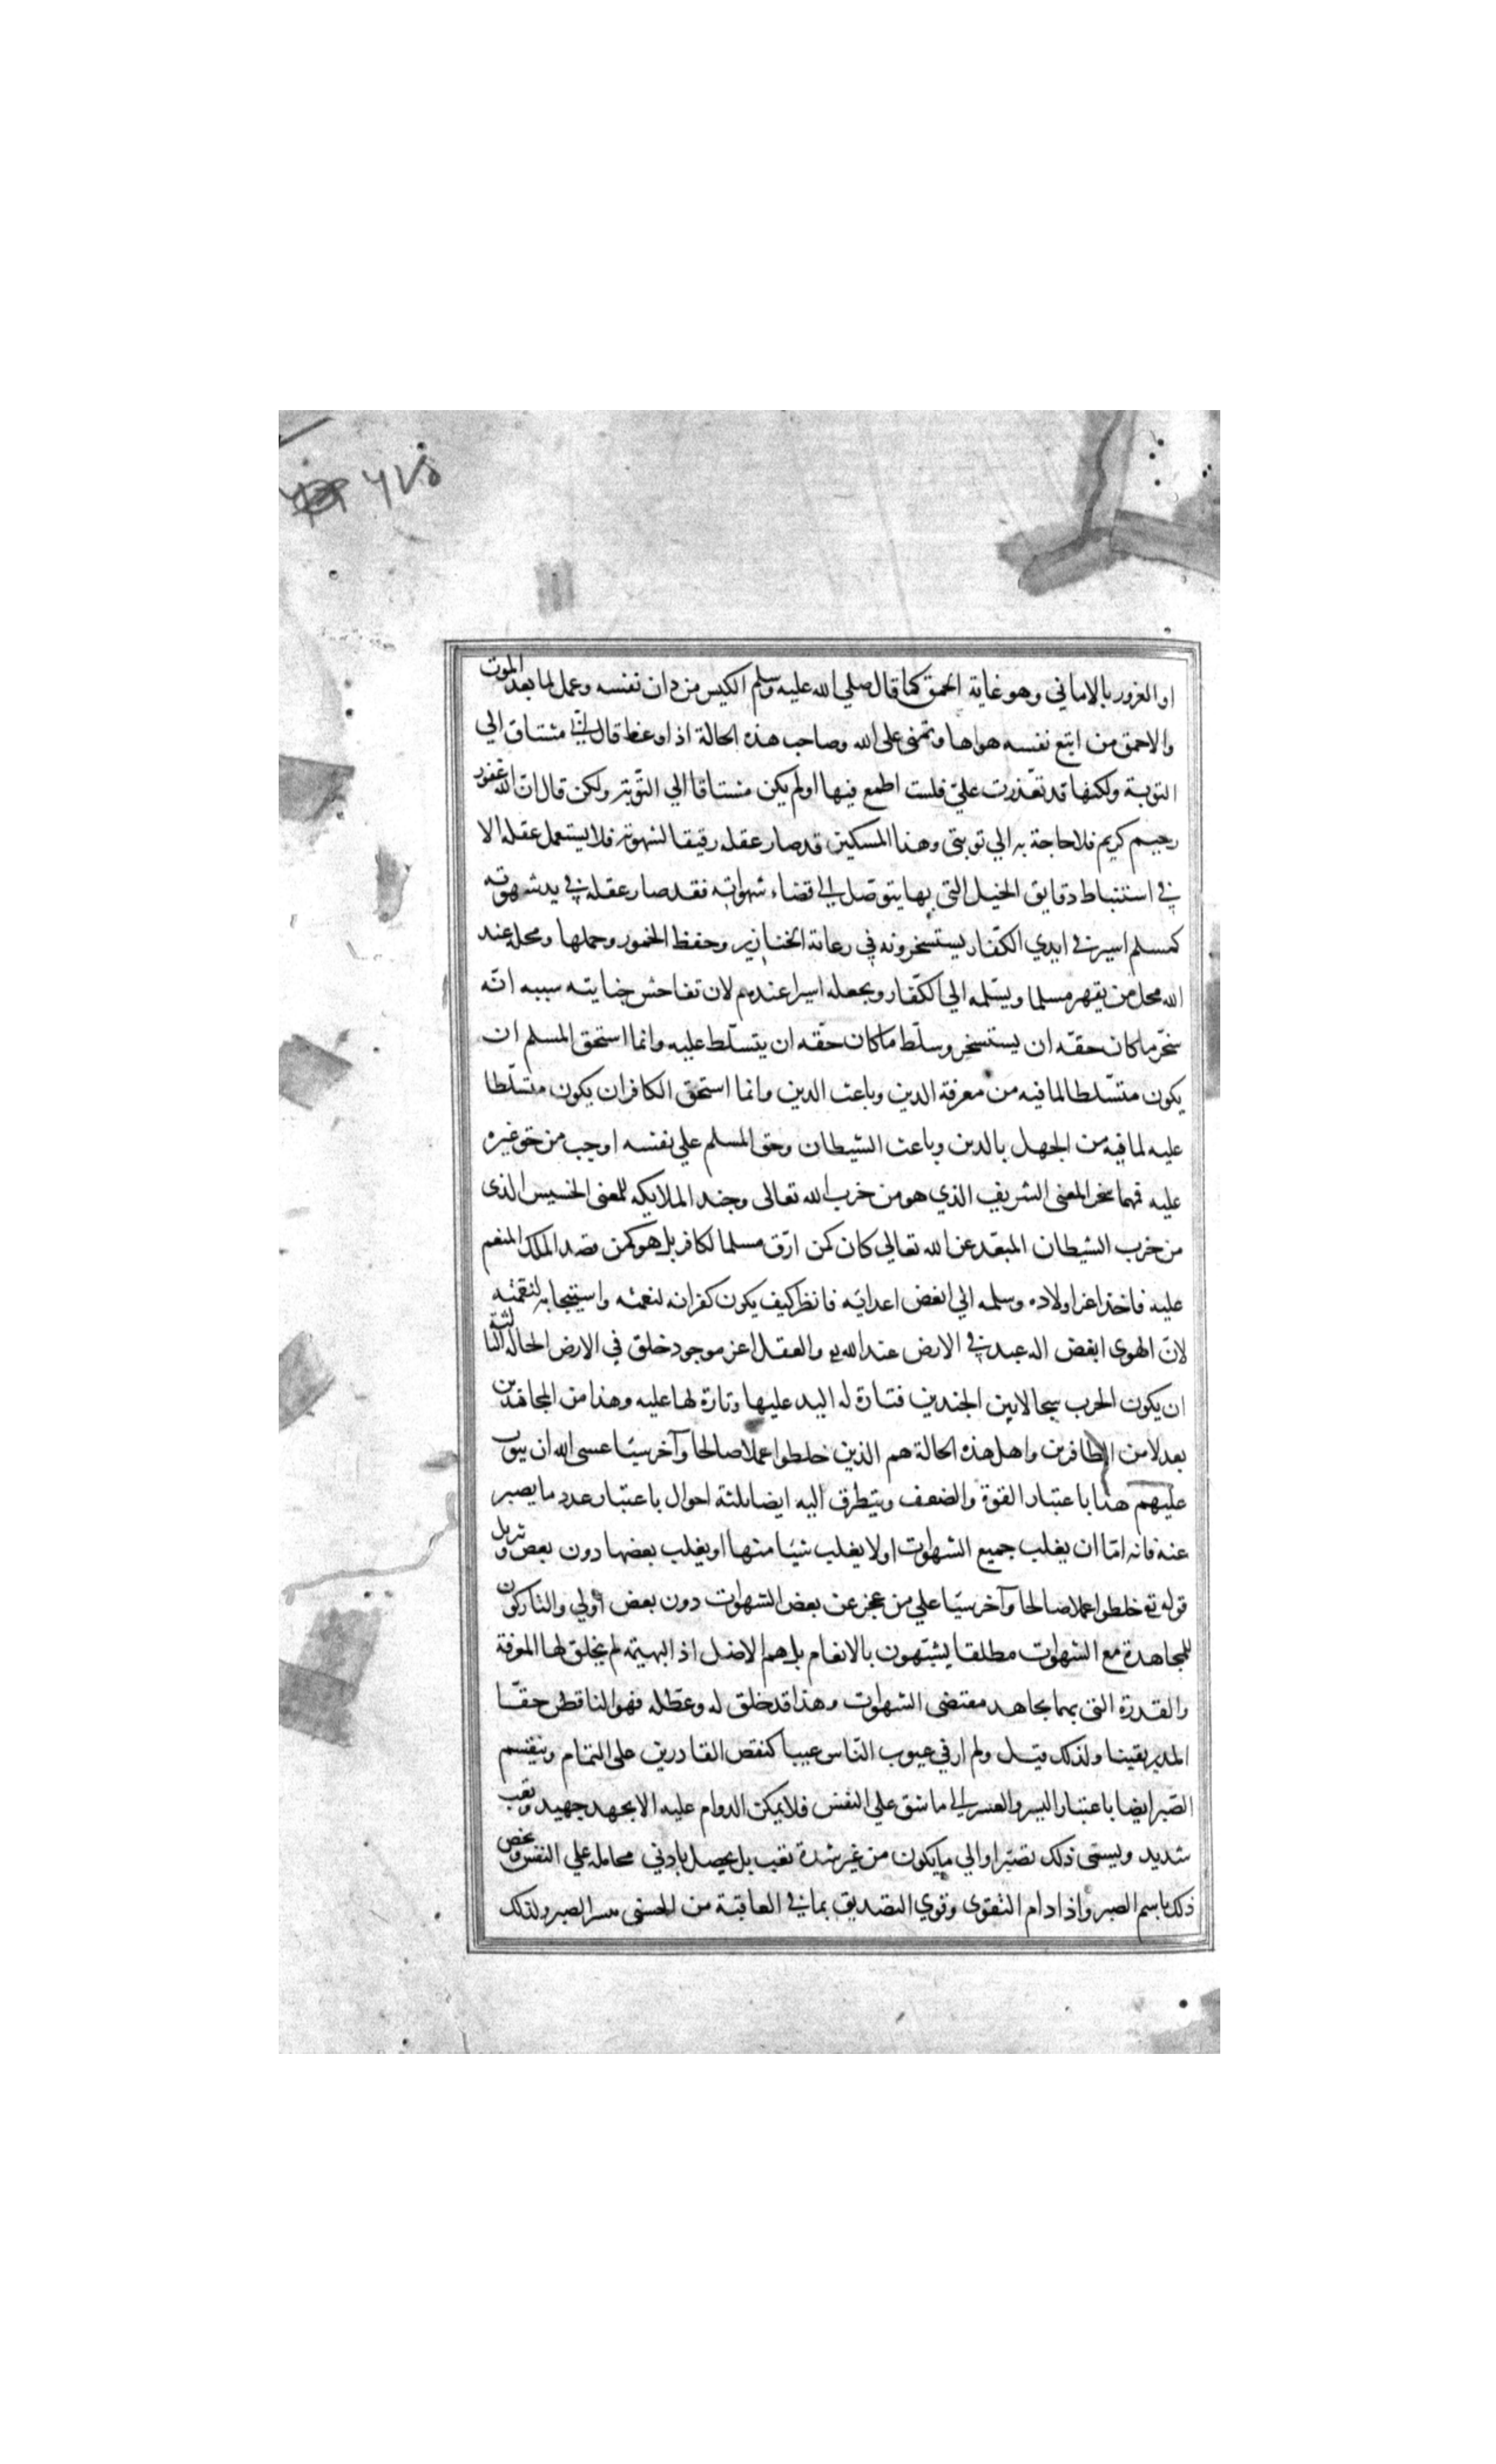 ٦٧٥
او الغرور بالاماني وهو غاية الحمق كما قال صلي الله عليه وسلم الكيس من دان نفسه وعمل لما بعد الموت
والاحمق من اتبع نفسه هواها وتمنى على الله وصاحب هذه الحالة اذا وعظ قال انّي مشتاق الي
التوبة ولكنها قد تعّذرت عليّ فلست اطمع فيها او لم يكن مشتاقا الي التّوبة ولكن قال انّ الله غفور
رحيم كريم فلا حاجة به الي توبتى وهذا المسكين قد صار عقله رقيقا لشهوته فلا يستعمل عقله الا
في استنباط دقايق الحيل التى بها يتوصّل الي قضاء شهواته فقد صار عقله في يد شهوته
كمسلم اسير في ايدي الكفّار يستسخرونه في رعاية الخنازير وحفظ الخمور وحملها ومحله عند
الله محل من يقهر مسلما ويسّلمه الي الكفّار ويجعله اسيرا عندهم لان تفاحش جنايته سببه انّه
سخّر ما كان حقّه ان يستسخر وسلّط ما كان حقّه ان يتسلّط عليه وانما استحق المسلم ان
يكون متسّلطا لما فيه من معرفة الدين وباعث الدين وانما استحق الكافر ان يكون متسلّطا
عليه لما فيه من الجهل بالدين وباعث الشيطان وحق المسلم علي نفسه اوجب من حق غيره
عليه فمهما سخر المعنى الشريف الذي هو من حزب الله تعالى وجند الملايكه للمعنى الخسيس الذى
من حزب الشيطان المبعّد عن الله تعالي كان كمن ارّق مسلما لكافر بل هو كمن قصد الملك المنعم
عليه فاخذ اعز اولاده وسلمه الي ابغض اعدائه فانظر كيف يكون كفرانه لنعمته واستيجابه لنقمته
لانّ الهوى ابغض اله عبد في الارض عند الله تع والعقل اعز موجود خلق في الارض الحاله الثالثة
ان يكون الحرب سجالا بين الجندين فتارة له اليد عليها وتارة لها عليه وهذا من المجاهدين
بعد لا من الظافرين واهل هذه الحالة هم الذين خلطوا عملا صالحا وآخر سيّا عسى الله ان يتوب
عليهم هذا باعتبار القوة والضعف ويتطرق اليه ايضا ثلثة احوال باعتبار عدد ما يصبر
عنه فانه امّا ان يغلب جميع الشهوات او لا يغلب شيئا منها او يغلب بعضها دون بعض وتنزيل
قوله تع خلطوا عملا صالحا وآخر سيّا علي من عجز عن بعض الشهوات دون بعض اولي والتاركون
للمجاهدة مع الشهوات مطلقا يشبّهون بالانعام بل هم الاضل اذ البهيمة لم يخلق لها المعرفة
والقدرة التى بهما يجاهد مقتضى الشهوات وهذا قد خلق له وعطّله فهو الناقص حقّا
المدبر يقينا ولذلك قيل ولم ار في عيوب النّاس عيبا كنقص القادرين على التمام وينقسم
الصّبر ايضا باعتبار اليسر والعسر الي ما شق علي النفس فلا يمكن الدوام عليه الا بجهد جهيد وتعب
شديد ويسمّى ذلك تصبّرا والي ما يكون من غير شدة تعب بل يحصل بادني محامله علي النفس ويخص
ذلك باسم الصبر واذا دام التّقوى وقوي التصديق بما في العاقبة من الحسنى تيسر الصبر ولذلك